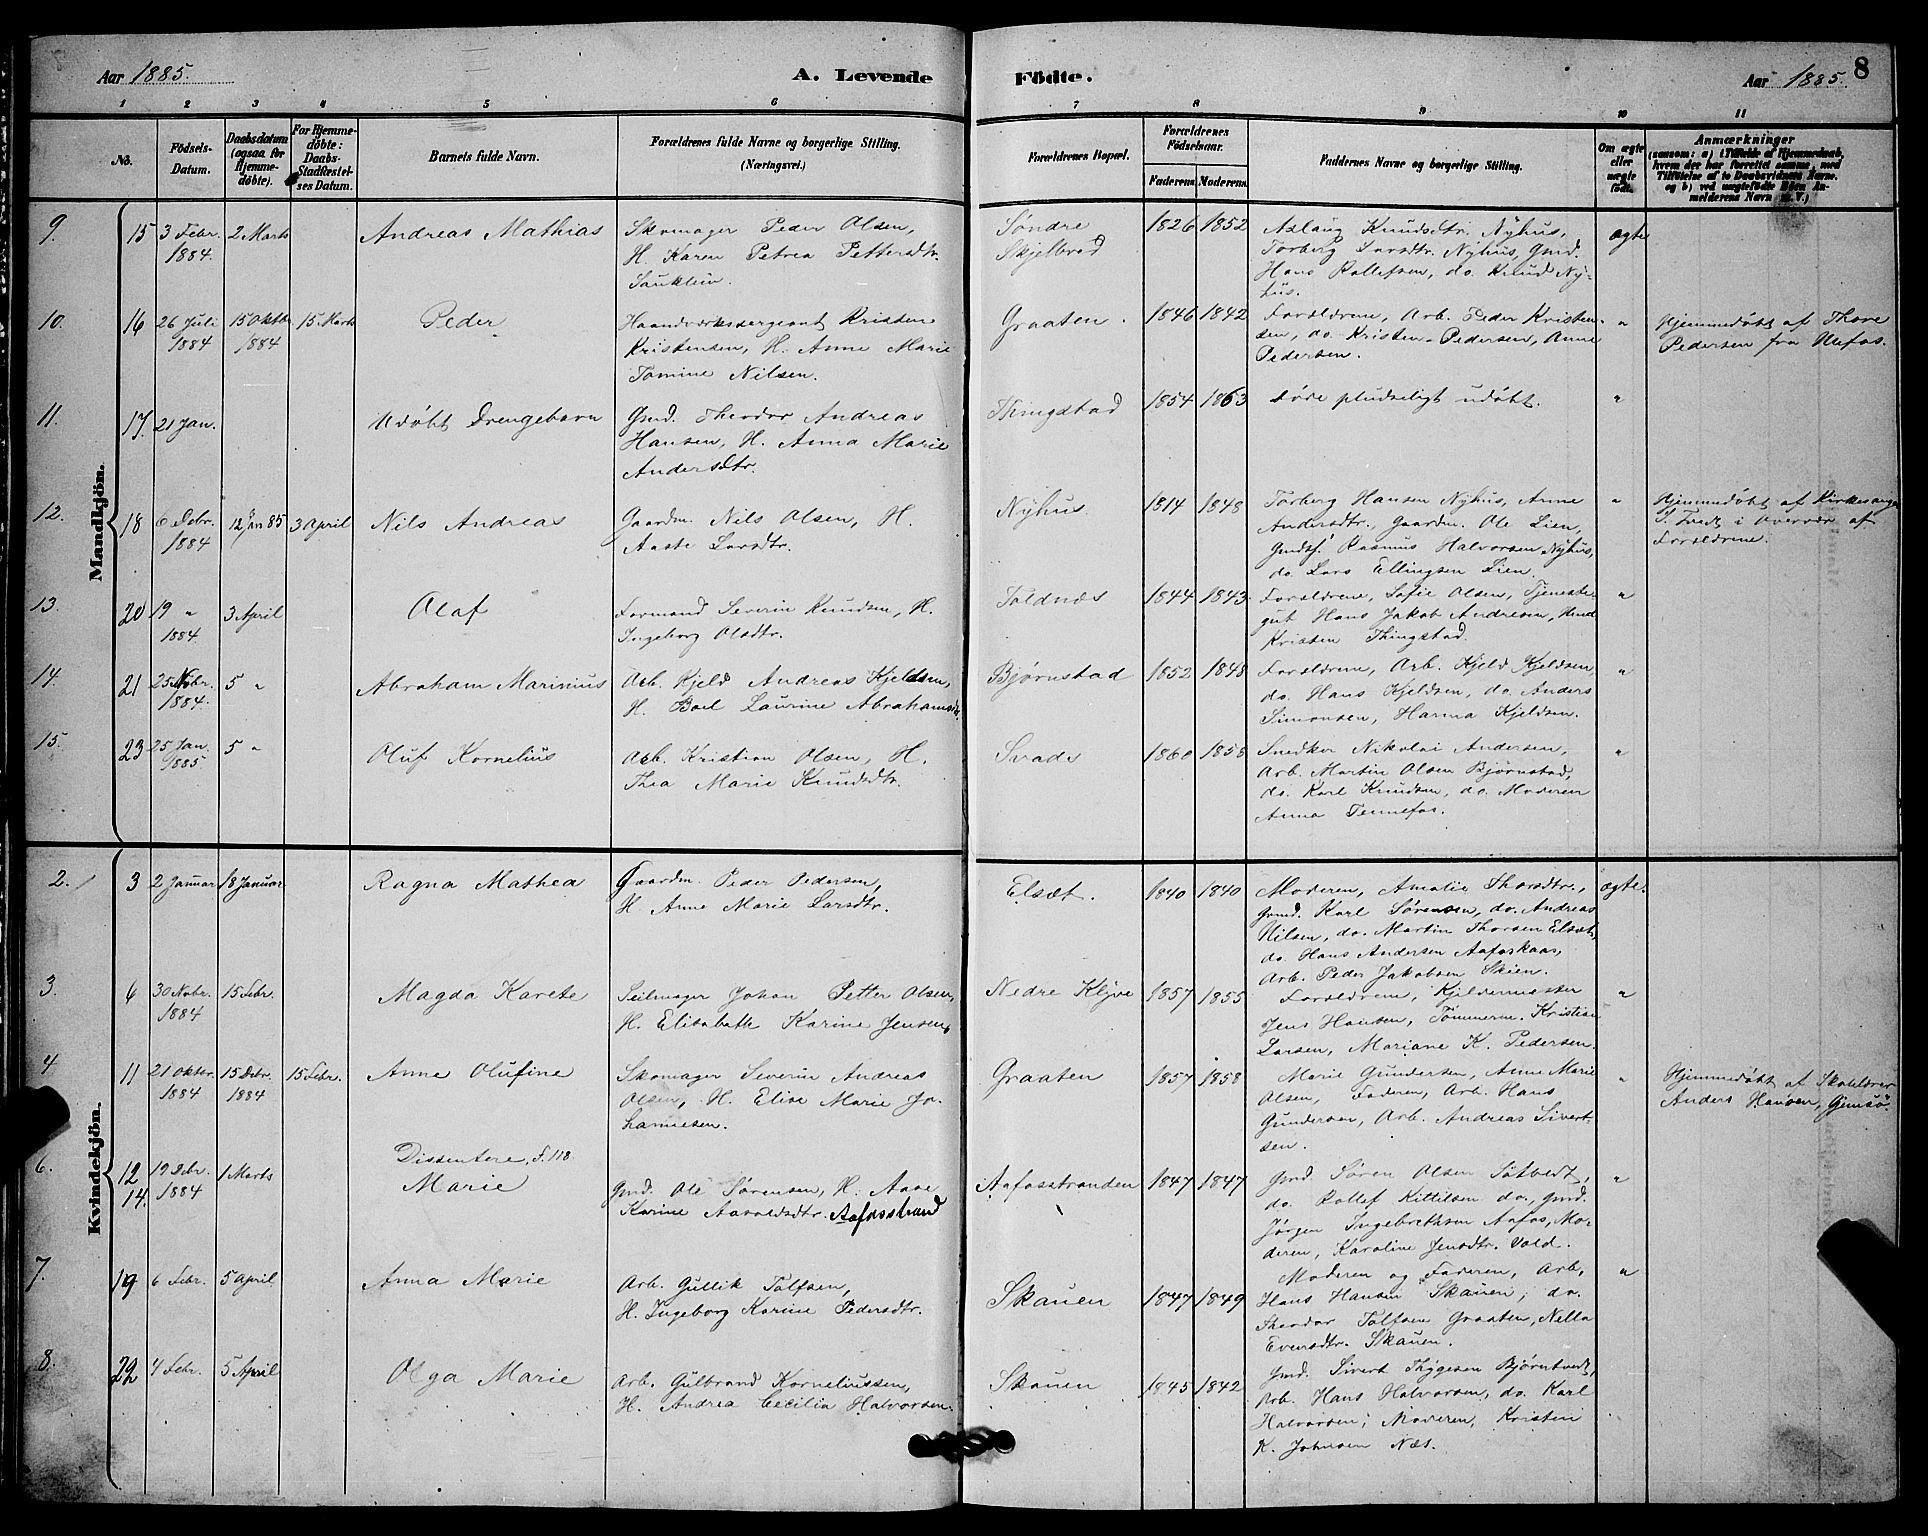 Aar 1885. A. Levende Födte. Aar 1885. 8
1 2 3 4 5 6 7 8 9 10 11
No.
Födsels-Datum.
Daabsdatum (ogsaa for Hjemmedöbte).
For Hjemmedöbte: Daabs-Stadfæstelses Datum.
Barnets fulde Navn.
Forældrenes fulde Navne og borgerlige Stilling.
(Næringsvei.)
Forældrenes Bopæl.
Forældrenes Födselsaar.
Faderens Moderens
Faddernes Navne og borgerlige Stilling.
Om ægte eller uægte födt.
Anmærkninger
(saasom: a) i Tilfælde af Hjemmedaab, hvem der har forrettet samme, med Tilföielse af to Daabsvidners Navne, og b) ved uægtefödte Börn Anmelderens Navn m. V.)
Mandkjön.
9. 15 3 Febr. 2 Marts Andreas Mathias Skomager Peder Olsen, Søndre 1826 1852 Aslaug Knudsdtr. Nyhus, ægte
1884. H. Karen Petrea Pettersdtr. Skjelbred Torberg Larsdtr. Nyhus, Gmd.
Sauklein. Hans Rollefsen, do. Knud Ny-
hus.
10. 16 26 Juli 15 Oktbr 15 Marts Peder Haandværkssergeant Kristen Graaten. 1846 1842 Forældrene, Arb. Peder Kristen- " Hjemmedøbt af Thore
1884 1884 Kristensen, H. Anne Marie sen, do. Kristen Pedersen, Anne Pedersen fra Ulefos.
Tomine Nilsen. Pedersen.
11. 17. 21 Jan. Udøbt Drengebarn Gmd. Theodor Andreas Thingstad 1854 1863 døde pludseligt udøbt. "
Hansen, H. Anna Marie
Andersdtr.
12. 18 6 Debr. 12 Jan 85 3 April Nils Andreas Gaardm. Nils Olsen, H. Nyhus 1814 1848 Torberg Hansen Nyhus, Anne " Hjemmedøbt af Kirkesanger
1884 Aaste Larsdtr. Andersdtr., Gaardm. Ole Lien, Tvedt i Overvær af
Gmdsf. Rasmus Halvorsen Nyhus, Forældrene.
do. Lars Ellingsen Lien.
13. 20 19 " 3 April Olaf Formand Severin Knudsen, H. Toldnes 1844 1843 Forældrene, Sofie Olsen, Tjeneste- "
1884. Ingeborg Olsdtr. gut Hans Jakob Andresen,
Kristen Thingstad.
14. 21 25 Nobr. 5 " Abraham Marinius Arb. Kjeld Andreas Kjeldsen, Bjørnstad 1852 1848 Forældrene, Arb. Kjeld Kjeldsen, "
1884. H. Boel Laurine Abrahamsdtr. do. Hans Kjeldsen, do. Anders
Simonsen, Hanna Kjeldsen.
15. 23 25 Jan. 5 " Oluf Kornelius Arb. Kristian Olsen, H. Svads 1860 1858 Snedker Nikolai Andersen, "
1885 Thea Marie Knudsdtr. Arb. Martin Olsen Bjørnstad,
do. Karl Knudsen, do. Moderen
Anna Tennefos.
Kvindekjön.
2. 3 2 Januar 18 Januar Ragna Mathea Gaardm. Peder Pedersen, Elsæt. 1840 1840 Moderen, Amalie Thorsdtr., ægte.
H. Anne Marie Larsdtr. Gmd. Karl Sørensen, do. Andreas
Nilsen, do. Martin Thorsen Elsæt,
do. Hans Andersen Aafoskaas,
Arb. Peder Jakobsen Skien.
3. 6 30 Nobr. 15 Febr. Magda Karete Seilmager Johan Petter Olsen, Nedre Klyve 1857 1855 Forældrene, Kjeldermester "
1884 H. Elisabeth Karine Jensen, Jens Hansen, Tømmerm. Kristian
Larsen, Mariane K. Pedersen.
4 11 21 Oktbr. 15 Debr. 15 Febr. Anne Olufine Skomager Severin Andreas Graaten 1857 1858 Marie Gundersen, Anne Marie " Hjemmedøbt af Skolelærer
1884 1884 Olsen, H. Elise Marie Jo- Olsen, Faderen, Arb. Hans Anders Hansen, Gjemsø.
hannesen. Gundersen, Arb. Andreas Sivert-
sen.
6. 12 Dissentere, F. 118.
14. 19 Debr. 1 Marts Marie Gmd. Ole Sørensen, H. Aase Aafosstranden 1847 1847 Gmd. Søren Olsen Sötvedt, "
1884 Karine Aasoldsdtr. Aafosstrand do. Rollef Kittilsen do., Gmd.
Jørgen Ingebrethsen Aafos, Mo-
deren, Karoline Jensdtr. Vold.
7. 19 6 Febr. 5 April Anna Marie Arb. Gullik Tolfsen, Skauen 1847 1849 Moderen og Faderen, Arb. "
H. Ingeborg Karine Pedersdtr. Hans Hansen Skauen, do.
Theodor Tolfsen Graaten, Nella
Evensdtr. Skauen.
8. 22 4 Febr. 5 April Olga Marie Arb. Gulbrand Korneliussen, Skauen 1845 1842 Gmd. Sivert Thygesen Bjørntvedt,
H. Andrea Cecilia Halvorsen. Arb. Hans Halvorsen, do. Karl
Halvorsen, Moderen, Kristin
K. Johnsen Næs.